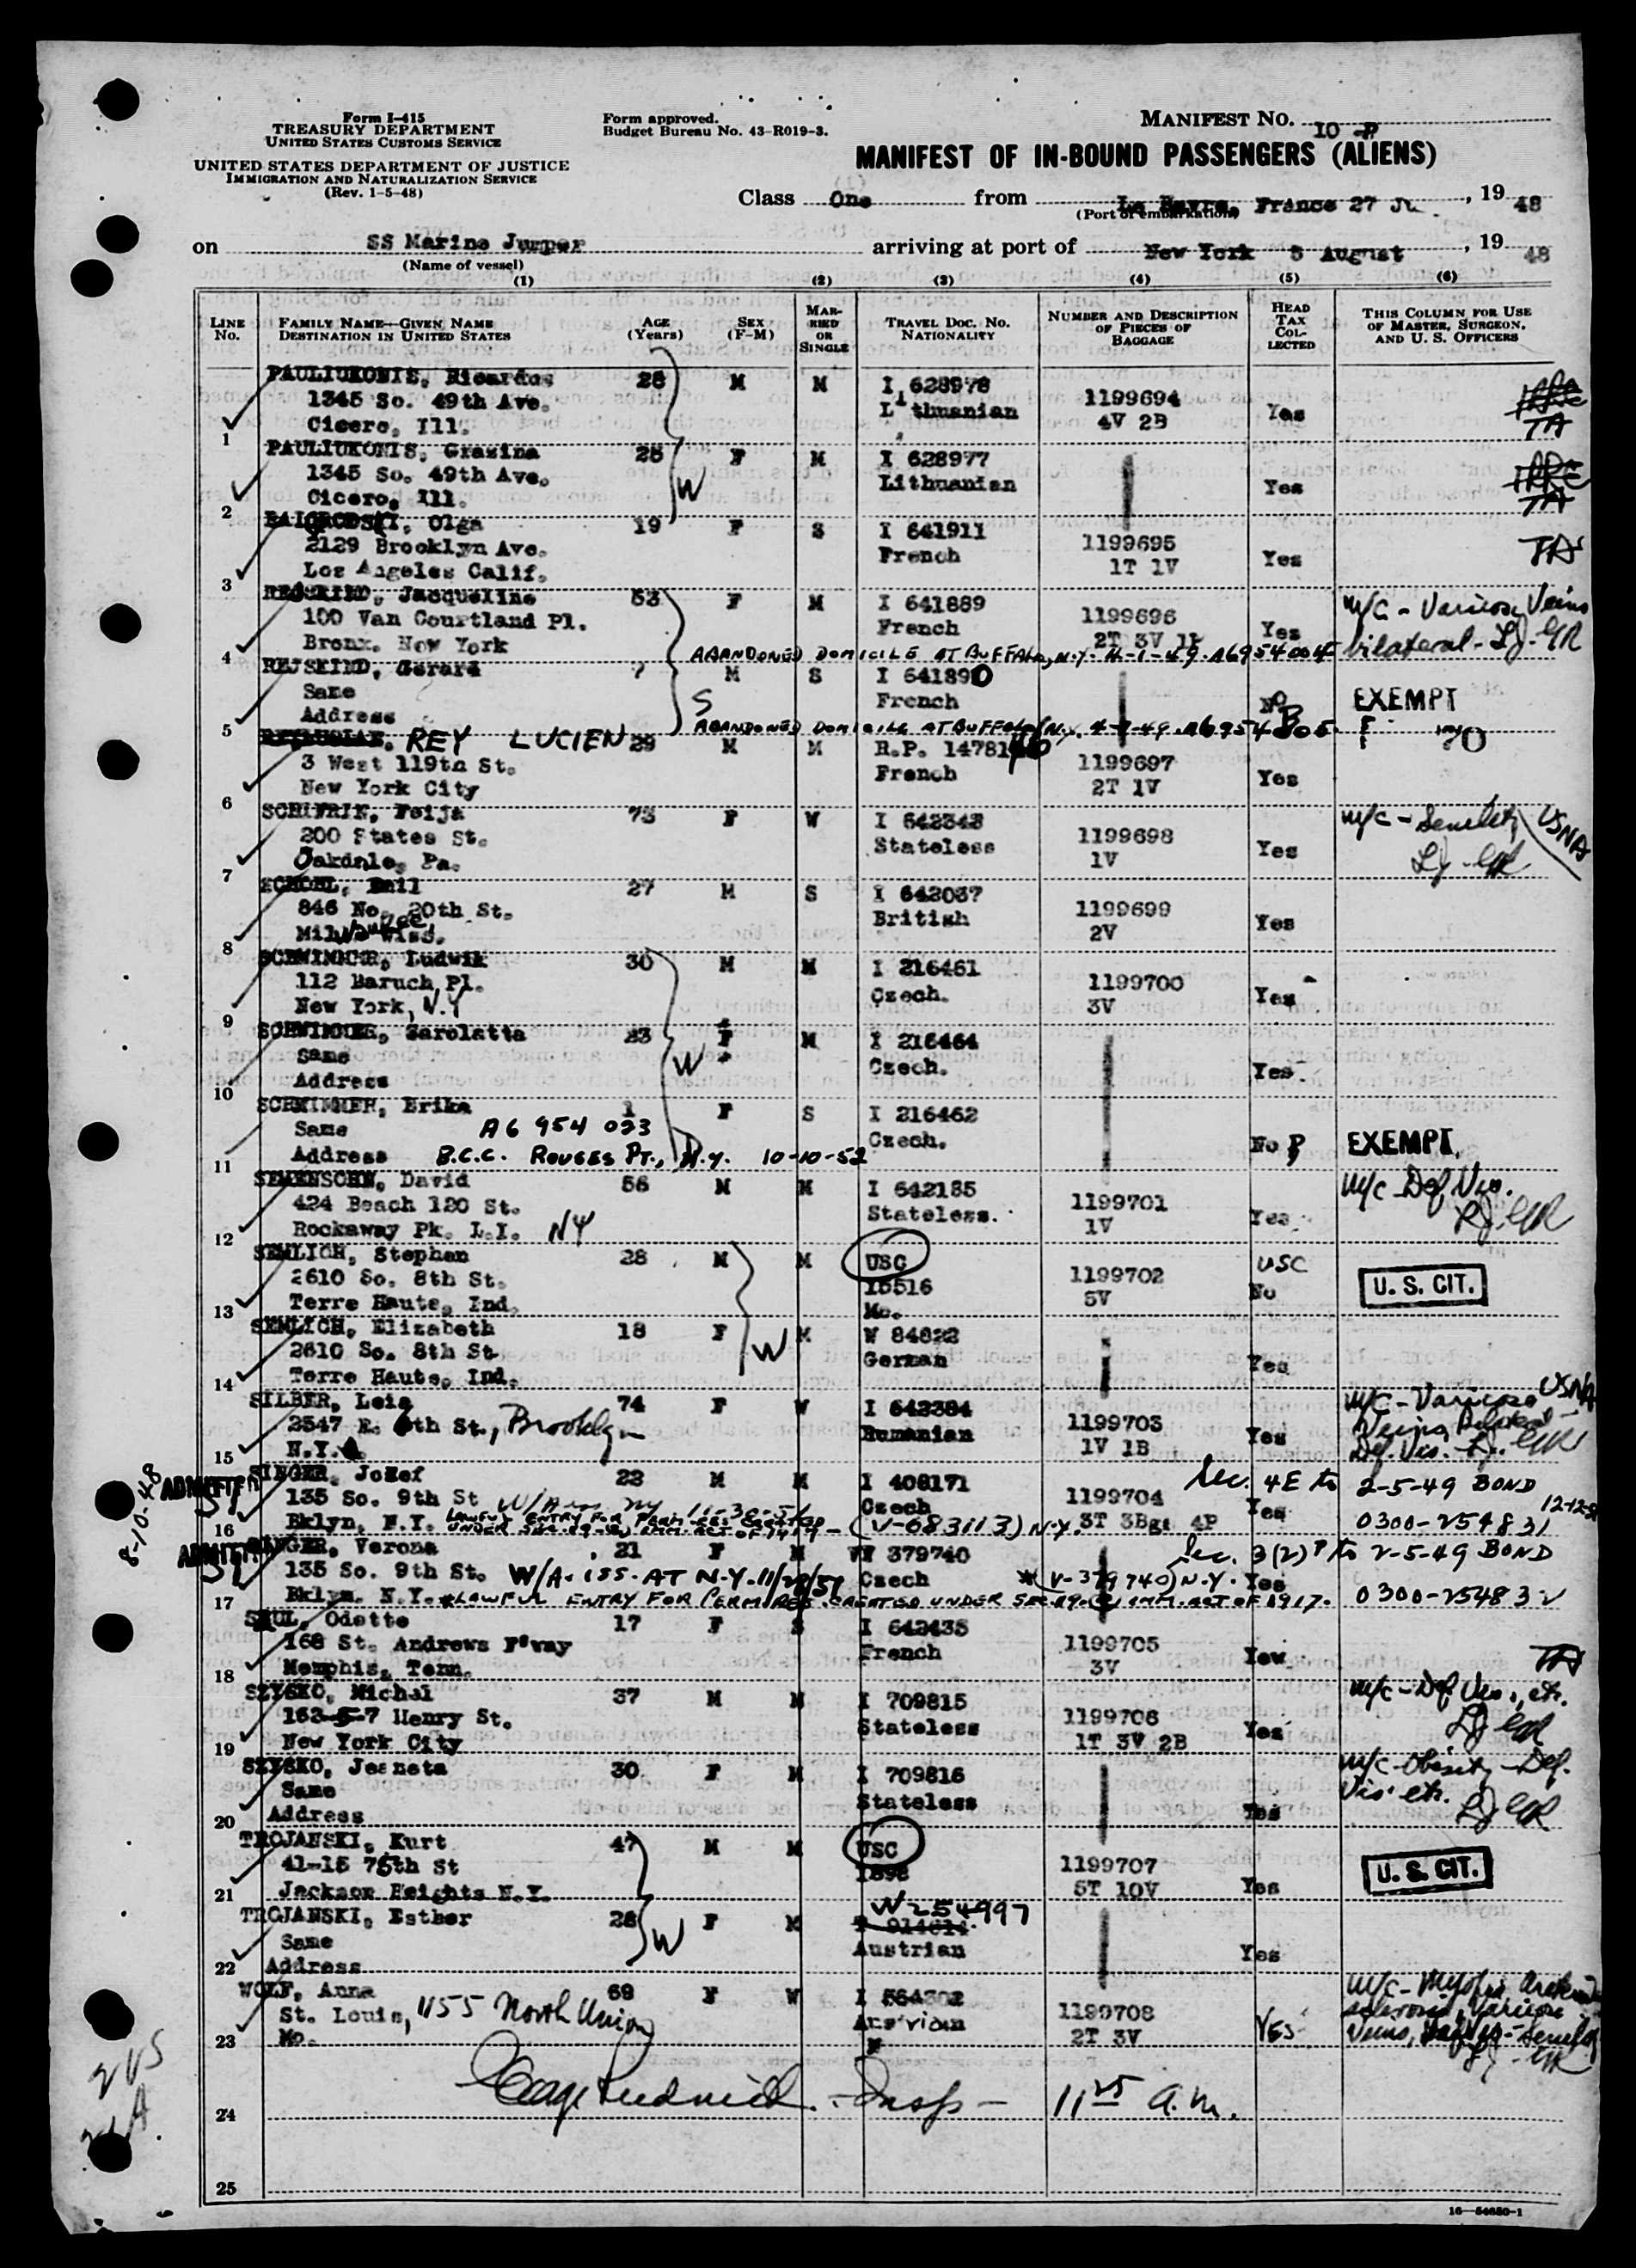 Form I-415
TREASURY DEPARTMENT
UNITED STATES CUSTOMS SERVICE
UNITED STATES DEPARTMENT OF JUSTICE
IMMIGRATION AND NATURALIZATION SERVICE
(Rev. 1-5-48)
Form approved.
Budget Bureau No. 43-R019-3.
MANIFEST NO. 10-P
MANIFEST OF IN-BOUND PASSENGERS (ALIENS)
Class One from Le Havre, France 27 , 19 48
(Port of embarkation)
on SS Marine Jumper arriving at port of New York 5 August , 19 48
(Name of vessel)
(1) (2) (3) (4) (5) (6)
LINE No.
FAMILY NAME—GIVEN NAME DESTINATION IN UNITED STATES
AGE (Years)
SEX (F-M)
MARRIED OR SINGLE
TRAVEL DOC. NO. NATIONALITY
NUMBER AND DESCRIPTION OF PIECES OF BAGGAGE
HEAD TAX COLLECTED
THIS COLUMN FOR USE OF MASTER, SURGEON, AND U. S. OFFICERS
PAULIUKONIS, Ricardos 28 M M I 628978
1345 So. 49th Ave. Lithuanian 1199694 Yes
Cicero, Ill. 4V 2B TA
1
PAULIUKONIS, Grazina 25 F M I 628977
1345 So. 49th Ave. W Lithuanian Yes
Cicero, Ill. TA
2
Olga 19 F S I 641911
2129 Brooklyn Ave. French 1199695 Yes TA
Los Angeles Calif. 1T 1V
3
REJSKIND, Jacqueline 53 F M I 641889 m/c - Varicose Veins
100 Van Courtland Pl. French 1199696 Yes bilateral
Bronx, New York 2T 3V
4 ABANDONED DOMICILE AT BUFFALO, N.Y.
REJSKIND, Gerard 7 M S I 641890
Same S French No EXEMPT
Address
5 ABANDONED DOMICILE AT BUFFALO N.Y.
REY LUCIEN 29 M M R.P.
3 West 119th St. French 1199697 Yes
New York City 2T 1V
6
SCHIFRIN, Feija 73 F W I 642343 m/c - Senility USNA
200 States St. Stateless 1199698 Yes
Oakdale, Pa. 1V
7
27 M S I 642037
846 No. 20th St. British 1199699 Yes
Milwaukee Wisc. 2V
8
SCHWIMMER, Ludwik 30 M M I 216461
112 Baruch Pl. Czech. 1199700 Yes
New York, N.Y 3V
9
SCHWIMMER, Sarolatta F M I 216464
Same W Czech. Yes
Address
10
SCHWIMMER, Erika 1 F S I 216462
Same A6 954 023 Czech. No EXEMPT
Address B.C.C. ROUSES PT., N.Y. 10-10-52
11
SEMENSOHN, David 56 M M I 642185 m/c Def. Vis.
424 Beach 120 St. Stateless. 1199701 Yes
Rockaway Pk. L.I. NY 1V
12
SEMLICH, Stephen 28 M M USC USC
2610 So. 8th St. 15516 1199702 No U. S. CIT.
Terre Haute, Ind. Mo. 5V
13
SEMLICH, Elizabeth 18 F M W 84822
2610 So. 8th St W German Yes
Terre Haute, Ind.
14
SILBER, Leia 74 F W I 642384 m/c - Varicose USNA
2547 E. 6th St., Brooklyn Rumanian 1199703 Yes Veins
N.Y. 1V 1B Def. Vis.
15
ADMITTED SINGER, Jozef 23 M M I 408171 Sec. 4E to 2-5-49 BOND
135 So. 9th St Czech 1199704 Yes
Bklyn, N.Y. (V-683113) N.Y. 3T 3Bgs 4P 0300-254831
16 8-10-48
ADMITTED SINGER, Verona 21 F M 379740 Sec. 3(2) to 2-5-49 BOND
135 So. 9th St. W/A. ISS. AT N.Y. 11/29/51 Czech (V-379740) N.Y. Yes
Bklyn. N.Y. LAWFUL ENTRY FOR PERM. RES. CREATED UNDER SEC. 19 IMM. ACT OF 1917. 0300-254832
17
SAUL, Odette 17 F S I 642435
168 St. Andrews F'way French 1199705 Yes TA
Memphis, Tenn. 3V
18
SZYSKO, Michal 37 M M I 709815 m/c - Def. Vis., etc.
163-5-7 Henry St. Stateless 1199706 Yes
New York City 1T 3V 2B
19
SZYSKO, Jeaneta 30 F M I 709816 m/c Obesity - Def.
Same Stateless Yes Vis. etc.
Address
20
TROJANSKI, Kurt 47 M M USC
41-15 75th St 1898 1199707 Yes U. S. CIT.
Jackson Heights N.Y. 5T 10V
21
TROJANSKI, Esther 28 F M W 254997
Same W Austrian Yes
Address
22
WOLF, Anna 69 F W I m/c - Myopia
St. Louis, 1155 North Union Austrian 1199708 YES Varicose
Mo. 2T 3V Veins, Senility
23
Insp - 11 25 a.m.
24
25
16-54650-1